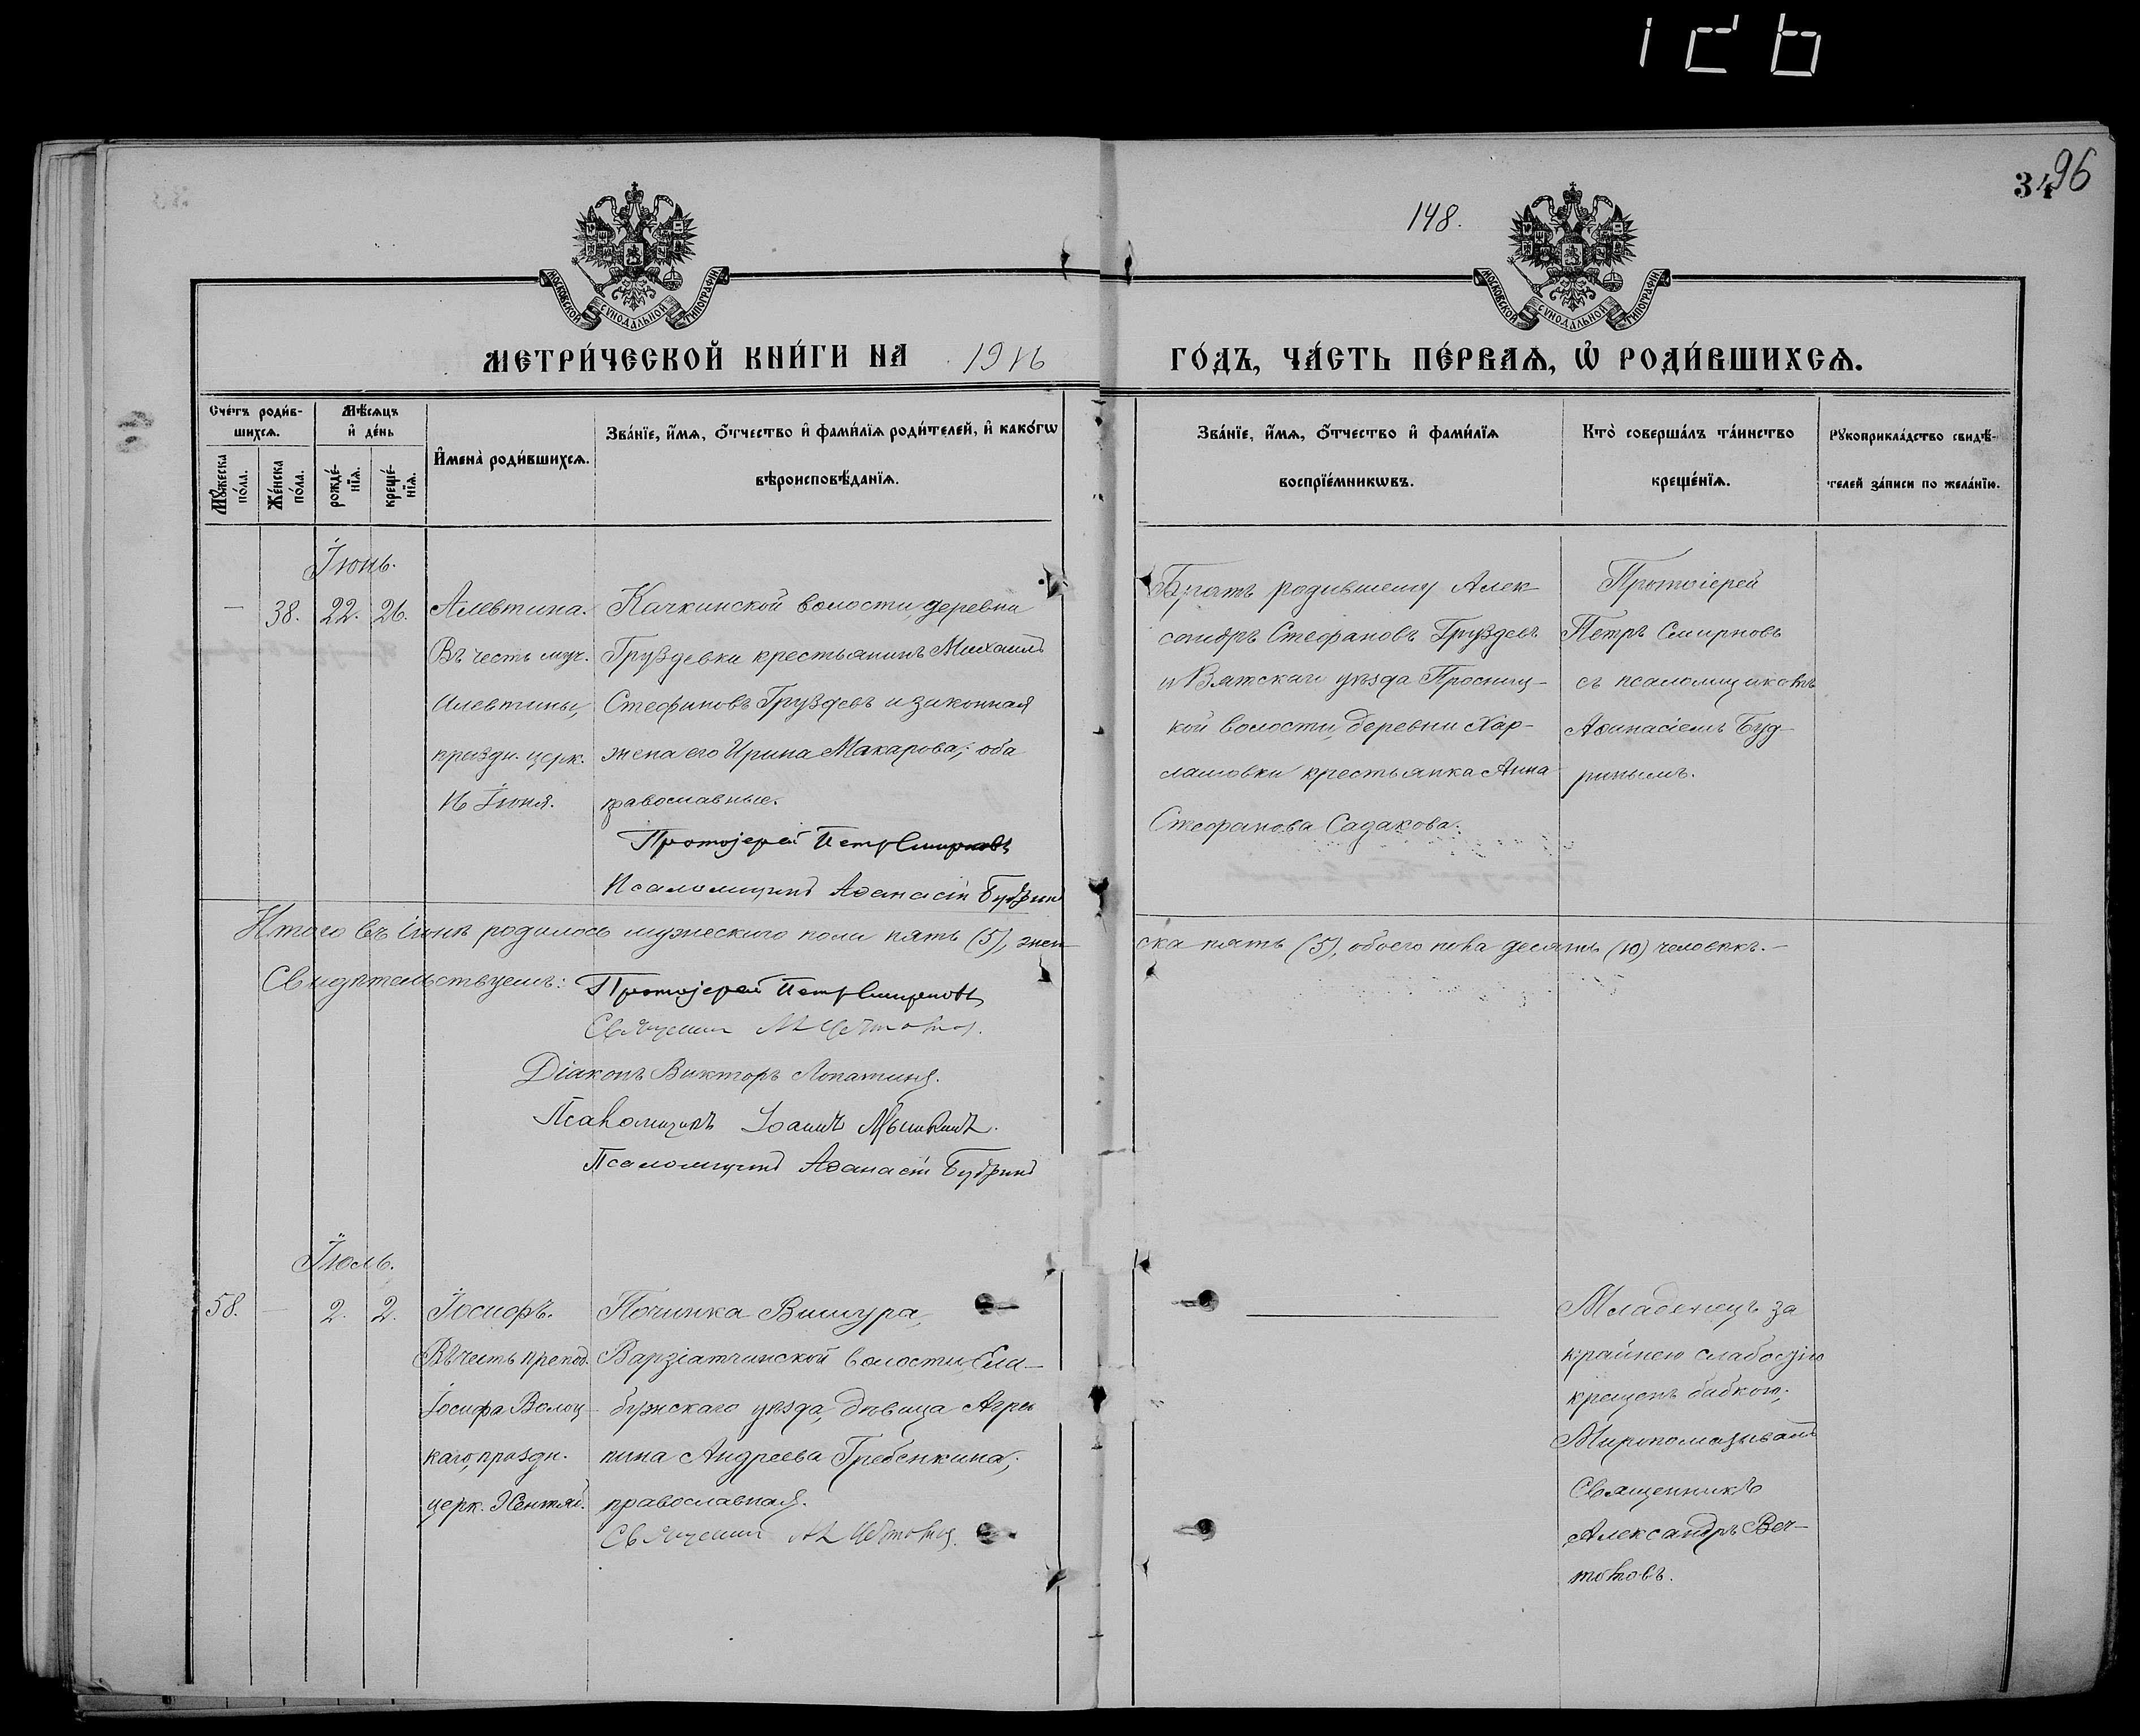 3496
148.
МОСКОВСКОЙ СѴНОДАЛЬНОЙ ТИПОГРАФІИ
МОСКОВСКОЙ СѴНОДАЛЬНОЙ ТИПОГРАФІИ
МЕТРИ́ЧЕСКОЙ КНИ́ГИ НА 1916
ГО́ДЪ, ЧА́СТЬ ПЕ́РВАѦ, Ѡ҆ РОДИ́ВШИХСѦ.
Сче́тъ роди́в-
шихсѧ.
Мꙋ́жеска по́ла.
Же́нска по́ла.
Мѣ́сѧцъ
и҆ де́нь
рожде́-
нїѧ.
креще́-
нїѧ.
И҆мена̀ роди́вшихсѧ.
Зва́нїе, и҆́мѧ, ѻ҆́тчество и҆ фами́лїѧ роди́телей, и҆ како́гѡ
вѣроисповѣ́данїѧ.
Зва́нїе, и҆́мѧ, ѻ҆́тчество и҆ фами́лїѧ
воспрїе́мникѡвъ.
Кто̀ соверша́лъ та́инство
креще́нїѧ.
Рꙋкоприкла́дство свидѣ́-
телей за́писи по жела́нїю.
Іюнь.
— 38. 22. 26.
Алевтина.
Въ честь муч.
Алевтины,
праздн. церк.
16 Іюня.
Качкинской волости, деревни
Груздевки крестьянинъ Михаилъ
Стефановъ Груздевъ и законная
жена его Ирина Макарова; оба
православные.
Протоіерей Петръ Смирновъ
Псаломщикъ Аѳанасій Будринъ
Братъ родившему Алек-
сандръ Стефановъ Груздевъ
и Вятскаго уѣзда Просниц-
кой волости, деревни Хар-
ламовки крестьянка Анна
Стефанова Садакова.
Протоіерей
Петръ Смирновъ
съ псаломщикомъ
Аѳанасіемъ Буд-
ринымъ.
Итого въ іюнѣ родилось мужескаго пола пять (5), жен-
ска пять (5), обоего пола десять (10) человѣкъ.—
Свидѣтельствуемъ: Протоіерей Петръ Смирновъ
Священник
Діаконъ Викторъ Лопатинъ.
Псаломщикъ Іоаннъ Мышкинъ.
Псаломщикъ Аѳанасій Будринъ
Іюль.
58. — 2. 2.
Іосифъ.
Въ честь препод.
Іосифа Волоц-
каго, праздн.
церк. 9 Сентяб.
Починка Вишура,
Варзіатчинской волости, Ела-
бужскаго уѣзда, дѣвица Агри-
пина Андреева Гребенкина;
православная.
Священник
Младенецъ за
крайнею слабостію
крещенъ бабкою;
Миропомазывалъ
Священникъ
Александръ Веч-
томовъ.